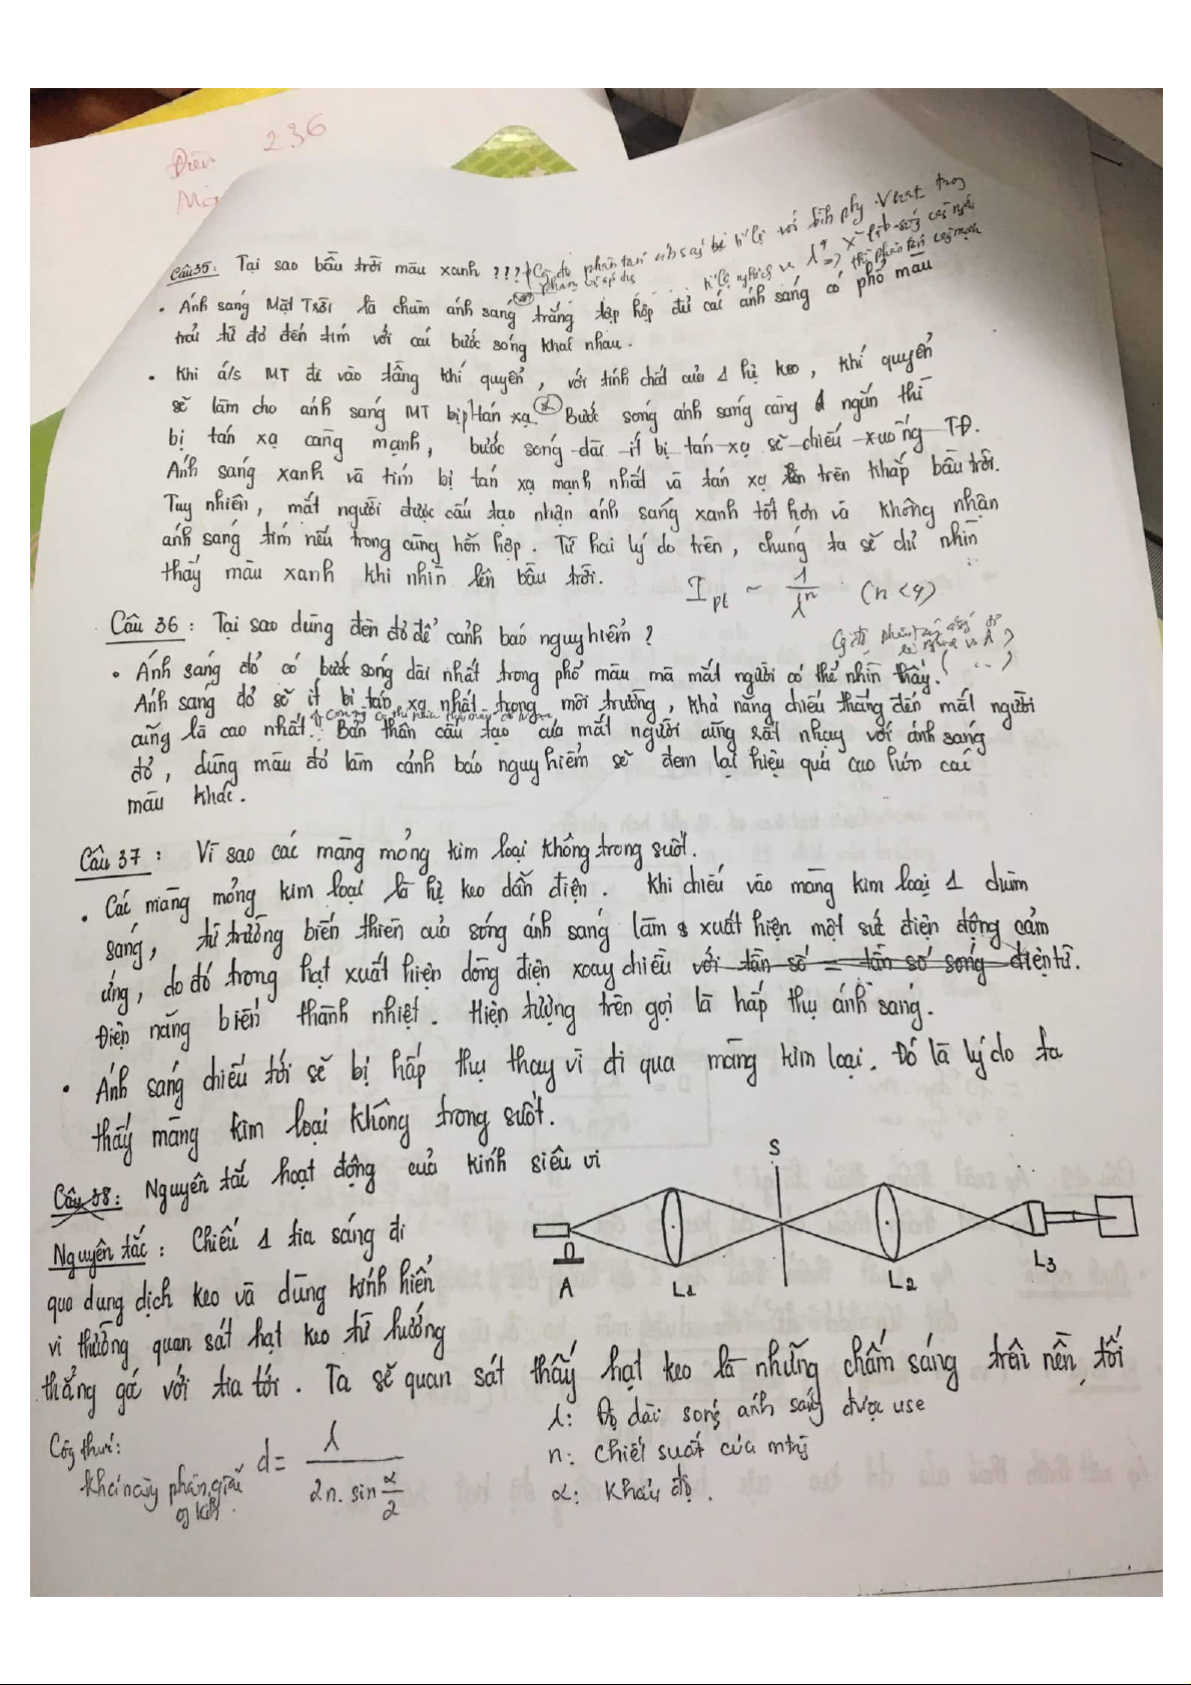 Điền 236
Câu 35: Tại sao bầu trời màu xanh ???
• Ánh sáng Mặt Trời là chùm ánh sáng trắng tập hợp đủ các ánh sáng có phổ màu
trải từ đỏ đến tím với các bước sóng khác nhau.
• Khi á/s MT đi vào tầng khí quyển, với tính chất của 1 hệ keo, khí quyển
sẽ làm cho ánh sáng MT bị tán xạ. Bước sóng ánh sáng càng ngắn thì
bị tán xạ càng mạnh, bước sóng dài ít bị tán xạ sẽ chiếu xuống TĐ.
Ánh sáng xanh và tím bị tán xạ mạnh nhất và tán xạ trên khắp bầu trời.
Tuy nhiên, mắt người được cấu tạo nhận ánh sáng xanh tốt hơn và không nhận
ánh sáng tím nếu trong cùng hỗn hợp. Từ hai lý do trên, chúng ta sẽ chỉ nhìn
thấy màu xanh khi nhìn lên bầu trời.
I pt ~ 1/λⁿ (n<4)
Câu 36: Tại sao dùng đèn đỏ để cảnh báo nguy hiểm?
• Ánh sáng đỏ có bước sóng dài nhất trong phổ màu mà mắt người có thể nhìn thấy.
Ánh sáng đỏ sẽ ít bị tán xạ nhất trong môi trường, khả năng chiếu thẳng đến mắt người
cũng là cao nhất. Bản thân cấu tạo của mắt người cũng rất nhạy với ánh sáng
đỏ, dùng màu đỏ làm cảnh báo nguy hiểm sẽ đem lại hiệu quả cao hơn các
màu khác.
Câu 37: Vì sao các màng mỏng kim loại không trong suốt.
• Các màng mỏng kim loại là hệ keo dẫn điện. Khi chiếu vào màng kim loại 1 chùm
sáng, từ trường biến thiên của sóng ánh sáng làm xuất hiện một sức điện động cảm
ứng, do đó trong hạt xuất hiện dòng điện xoay chiều với tần số = tần số sóng điện từ.
Điện năng biến thành nhiệt. Hiện tượng trên gọi là hấp thụ ánh sáng.
• Ánh sáng chiếu tới sẽ bị hấp thụ thay vì đi qua màng kim loại. Đó là lý do ta
thấy màng kim loại không trong suốt.
Câu 38: Nguyên tắc hoạt động của kính siêu vi
S
Nguyên tắc: Chiếu 1 tia sáng đi
A L1 L2 L3
qua dung dịch keo và dùng kính hiển
vi thường quan sát hạt keo từ hướng
thẳng góc với tia tới. Ta sẽ quan sát thấy hạt keo là những chấm sáng trên nền tối
Công thức: d = λ / 2n.sin α/2
khả năng phân giải
λ: Độ dài sóng ánh sáng được use
n: chiết suất của mtrg
α: Khẩu độ.